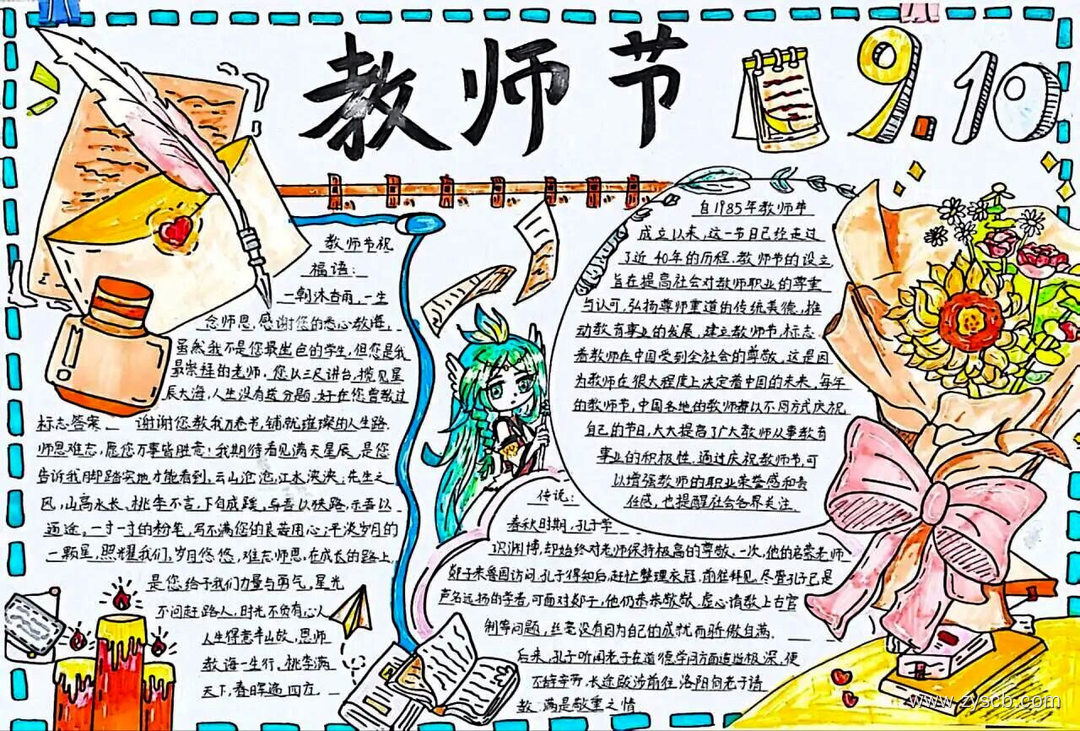 教师节
9.10
教师节祝
福语:
一朝沐杏雨,一生
念师恩,感谢您的悉心教诲,
虽然我不是您最出色的学生,但您是我
最崇拜的老师,您以三尺讲台,揽见星
辰大海,人生没有
标志答案 谢谢您教我万卷书,铺就璀璨的人生路.
师恩难忘,愿您万事皆胜意;我期待看见满天星辰,是您
告诉我用脚踏实地才能看到,云山沧沧,江水泱泱;先生之
风,山高水长,桃李不言,下自成蹊,
迢途,一寸一寸的粉笔,写不满您的良苦用心;平淡岁月的
一颗星,照耀我们,岁月悠悠,难忘师思,在成长的路上,
是您给予我们力量与勇气,星光
不问赶路人,时光不负有心人
人生得意
教诲一生行,桃李满
天下,春晖遍四方.
自1985年教师节
成立以来,这一节日已经走过
了近40年的历程.教师节的设立
旨在提高社会对教师职业的尊重
与认可,弘扬尊师重道的传统美德,推
动教育事业的发展,建立教师节,标志
着教师在中国受到全社会的尊敬,这是因
为教师在很大程度上决定着中国的未来,每年
的教师节,中国各地的教师都以不同方式庆祝
自己的节日,大大提高了广大教师从事教育
事业的积极性.通过庆祝教师节,可
以增强教师的职业荣誉感和责
任感,也提醒社会各界关注
传说:
春秋时期,孔子学
识渊博,却始终对老师保持极高的尊敬.一次,他的启蒙老师
郯子来鲁国访问,孔子得知后,赶忙整理衣冠,前往拜见.尽管孔子已是
声名远扬的学者,可面对郯子,他仍恭恭敬敬,虚心请教上古官
制等问题,丝毫没有因为自己的成就而骄傲自满.
后来,孔子听闻老子在道德学问方面造旨极深,便
不辞辛劳,长途跋涉前往洛阳向老子请
教,满是敬重之情
www.zyscb.com